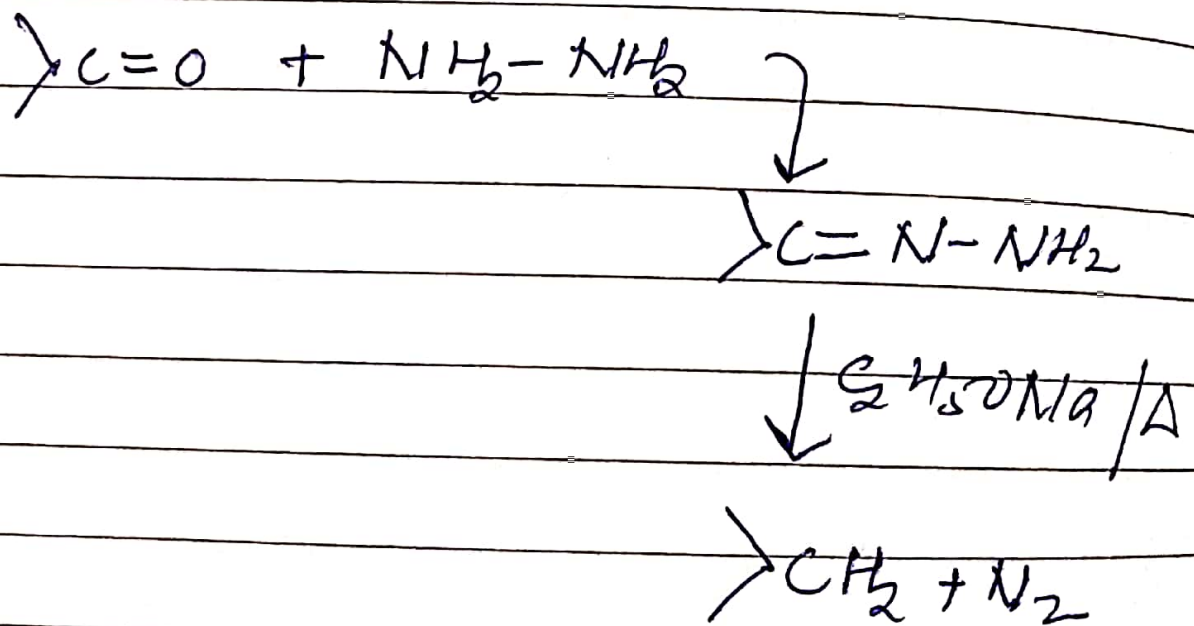 >C=O + NH₂-NH₂
>C=N-NH₂
C₂H₅ONa/Δ
>CH₂ + N₂